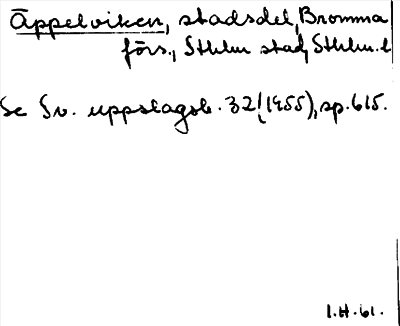 Äppelviken, stadsdel, Bromma
förs., Sthlm stad, Sthlm. l
Se Sv. uppslagsb. 32 (1955), sp. 615.
I.H. 61.